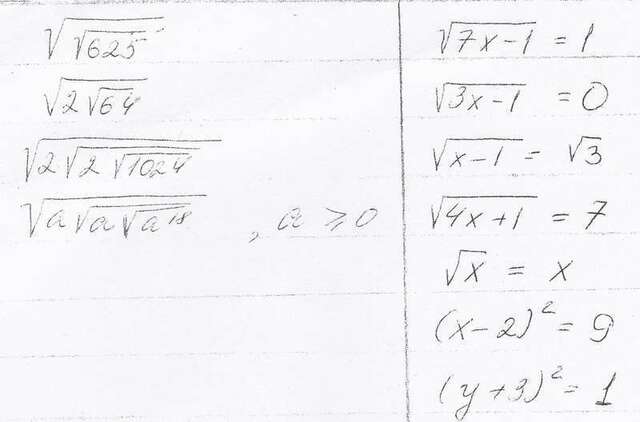 √√625
√2√64
√2√2√1024
√a√a√a¹⁸ , a ⩾ 0
√7x-1 = 1
√3x-1 = 0
√x-1 = √3
√4x+1 = 7
√x = x
(x-2)² = 9
(y+3)² = 1